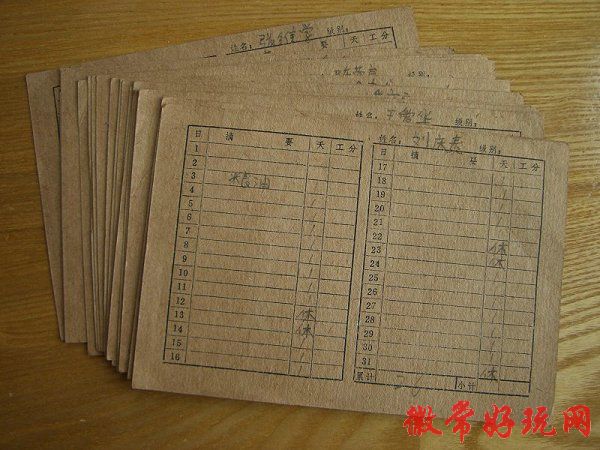 姓名：张維学 级别：
要 天 工分
级别：
姓名： 级别：
姓名：刘庆 级别：
日 摘 要 天 工分
1
2
3 粮油
4
5
6
7
8
9
10
11
12
13 休
14 休
15
16
日 摘 要 天 工分
17
18
19
20
21
22
23 休
24 休
25
26
27
28
29
30
31 休
累計 小計
徽常好玩网